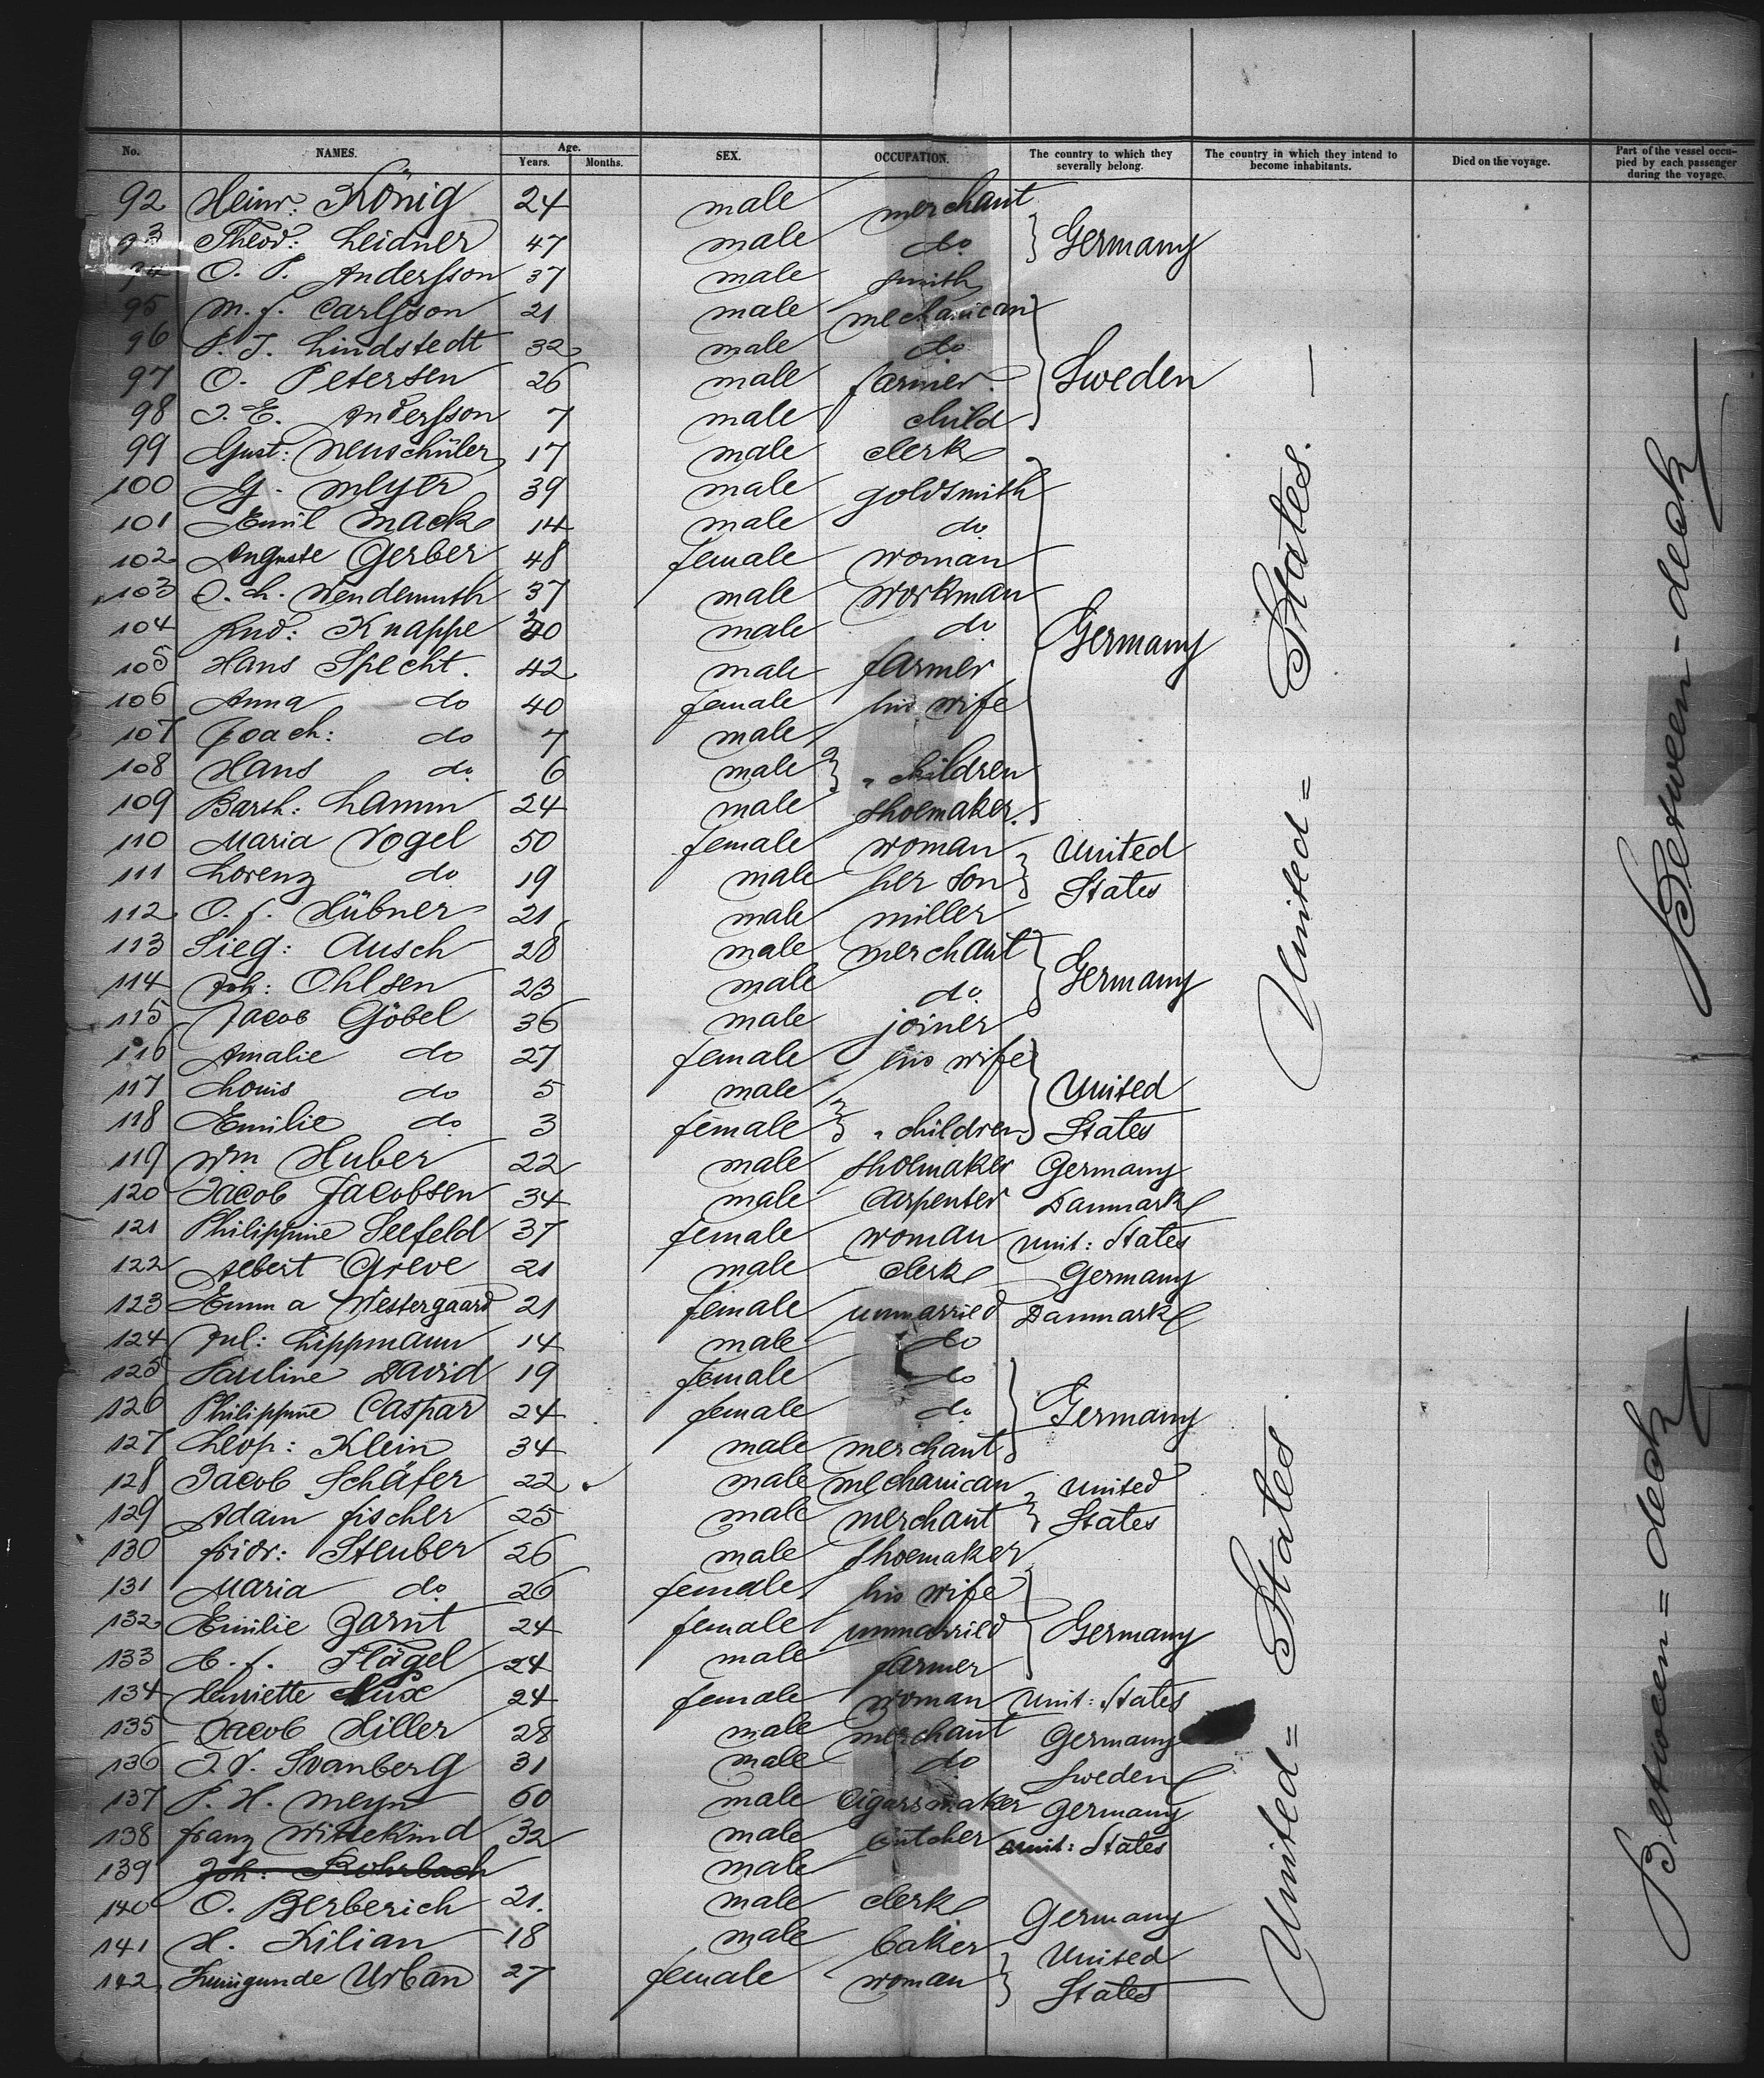 No. NAMES. Age. Years. Months. SEX. OCCUPATION. The country to which they severally belong. The country in which they intend to become inhabitants. Died on the voyage. Part of the vessel occupied by each passenger during the voyage.
92 Heinr: König 24 male merchant
93 Theod: Leidner 47 male do } Germany
94 O. P. Andersson 37 male smith
95 M. J. Carlsson 21 male mechanican
96 P. J. Lindstedt 32 male do
97 O. Petersen 26 male farmer } Sweden
98 J. E. Andersson 7 male child
99 Gust: Neuschüler 17 male clerk
100 G. Meyer 39 male goldsmith
101 Emil Mack 14 male do
102 Auguste Gerber 48 female woman
103 O. H. Wendemuth 37 male workman
104 Rud: Knappe male do } Germany
105 Hans Specht. 42 male farmer
106 Anna do 40 female his wife
107 Joach: do 7 male
108 Hans do 6 male } " children
109 Barth: Lamm 24 male shoemaker.
110 Maria Vogel 50 female woman } United
111 Lorenz do 19 male her son } States
112 O. F. Hübner 21 male miller
113 Sieg: Ausch 28 male merchant
114 Joh: Ohlsen 23 male do } Germany
115 Jacob Göbel 36 male joiner
116 Amalie do 27 female his wife
117 Louis do 5 male } United
118 Emilie do 3 female } " children } States
119 Wm Huber 22 male shoemaker Germany
120 Jacob Jacobsen 34 male carpenter Danmark
121 Philippine Seefeld 37 female woman Unit: States
122 Albert Greve 21 male clerk Germany
123 Emma Westergaard 21 female unmarried Danmark
124 Jul: Lippmann 14 male do
125 Pauline David 19 female do
126 Philippine Caspar 24 female do } Germany
127 Leop: Klein 34 male merchant
128 Jacob Schäfer 22 male mechanican } United
129 Adam Fischer 25 male merchant } States
130 Fridr: Steuber 26 male shoemaker
131 Maria do 26 female his wife
132 Emilie Zarnt 24 female unmarried } Germany
133 C. F. Flägel 24 male farmer
134 Henriette 24 female woman Unit: States
135 Jacob Hiller 28 male merchant Germany
136 J. V. Svanberg 31 male do Sweden
137 P. H. Meyn 60 male Cigarsmaker Germany
138 Franz Wittekind 32 male butcher Unit: States
139 Joh: Rohrbach male
140 O. Berberich 21. male clerk Germany
141 H. Kilian 18 male baker } United
142 Kunigunde Urban 27 female woman } States
United = States. —
United = States
Between - deck
Between = deck